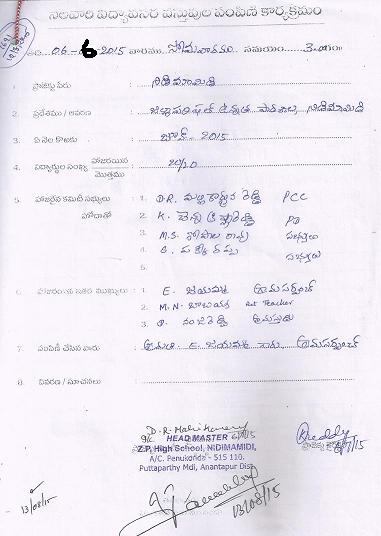 నెలవారి విద్యావసర వస్తువుల పంపిణీ కార్యక్రమం
తేది. 06-6-2015 వారము. సోమవారము సమయం....3.00
1 ప్రాజెక్టు పేరు నిడిమామిడి
2 ప్రదేశము / ఆవరణ జిల్లా పరిషత్ ఉన్నత పాఠశాల, నిడిమామిడి
3 ఏ నెల కొరకు జూన్ - 2015
4 విద్యార్థుల సంఖ్య హాజరయిన 20/20
మొత్తము
5 హాజరైన కమిటీ సభ్యులు 1. D.R. మల్లికార్జున రెడ్డి PCC
హోదాతో 2. K. రెడ్డి PD
3. M.S. గోపాల సభ్యులు
4. సభ్యులు
5.
6 హాజరయిన ఇతర ముఖ్యులు 1. E. జయమ్మ గ్రామ సర్పంచ్
2. M.N. బాబయ్య Art Teacher
3.
7 పంపిణీ చేసిన వారు శ్రీమతి. E. జయమ్మ గారు, గ్రామ సర్పంచ్
8 వివరణ / సూచనలు
D.R. Mallikarjuna
HEAD MASTER 6/7/15
Z.P. High School, NIDIMAMIDI,
A/C. Penukonda - 515 110.
Puttaparthy Mdl, Anantapur Dist.
Reddy
13/08/15
13/08/15